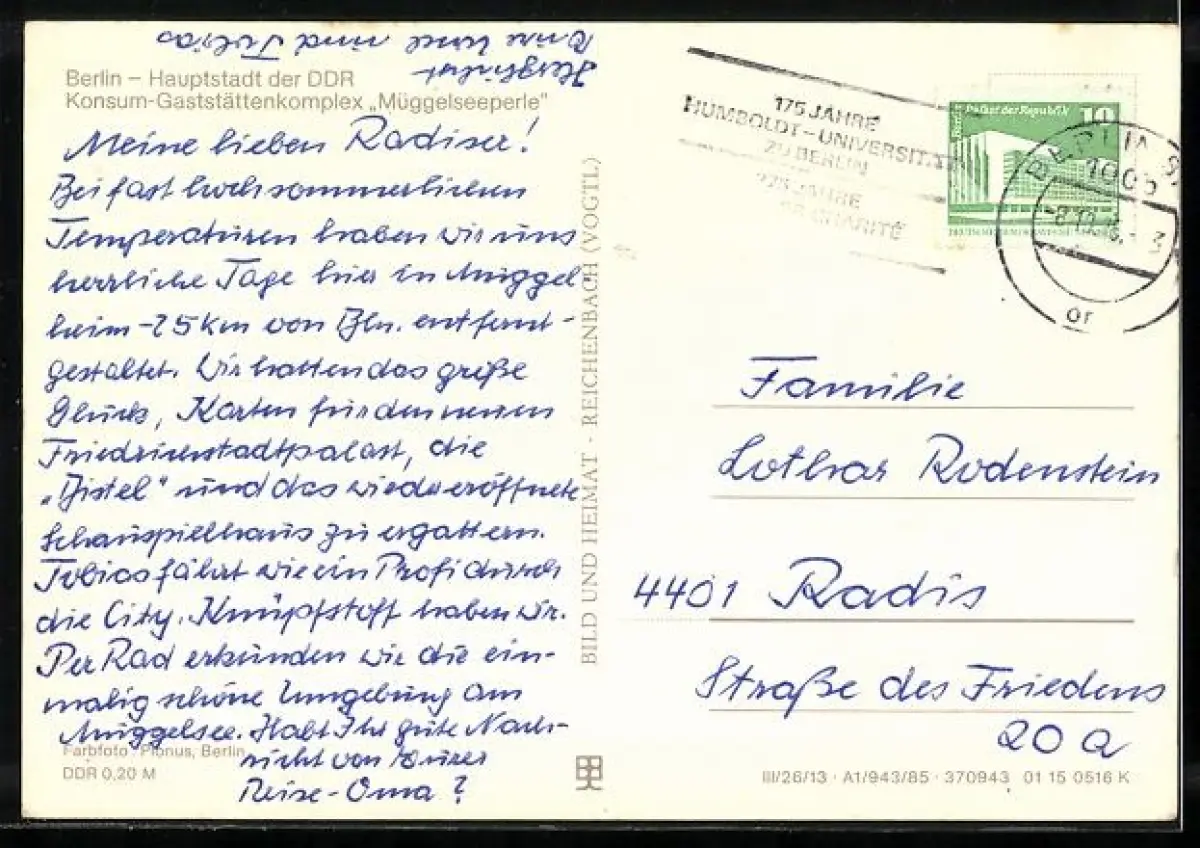 Berlin – Hauptstadt der DDR
Konsum-Gaststättenkomplex „Müggelseeperle"
Meine lieben Radiser!
Bei fast hochsommerlichen
Temperaturen haben wir uns
herrliche Tage hier in Müggel
heim - 25 km von Bln. entfernt -
gestaltet. Wir hatten das große
Glück, Karten für den neuen
Friedrichstadtpalast, die
„Distel" und das wiedereröffnete
Schauspielhaus zu ergattern.
Tobias fährt wie ein Profi durch
die City. Knüpfstoff haben wir.
Per Rad erkunden wir die ein-
malig schöne Umgebung am
Müggelsee. Habt Ihr gute Nach-
richt von Eurer
Reise-Oma?
Herzlichst
Eure Urel und Tobias
Farbfoto: Pionus, Berlin
DDR 0,20 M
BILD UND HEIMAT · REICHENBACH (VOGTL)
175 JAHRE
HUMBOLDT-UNIVERSITÄT
ZU BERLIN
275 JAHRE
CHARITÉ
Berlin, Palast der Republik 10
BERLIN
1085
or
Familie
Lothar Rodenstein
4401 Radis
Straße des Friedens
20 a
III/26/13 · A1/943/85 · 370943 01 15 0516 K